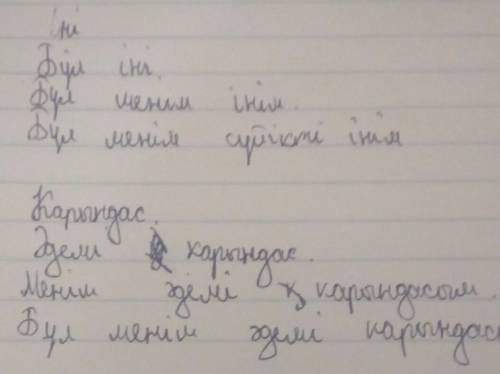 Іні
Бұл іні.
Бұл менім інім.
Бұл менім сүйікті інім
Карындас.
Әдемі карындас.
Менім әдемі карындасым.
Бұл менім әдемі карындас